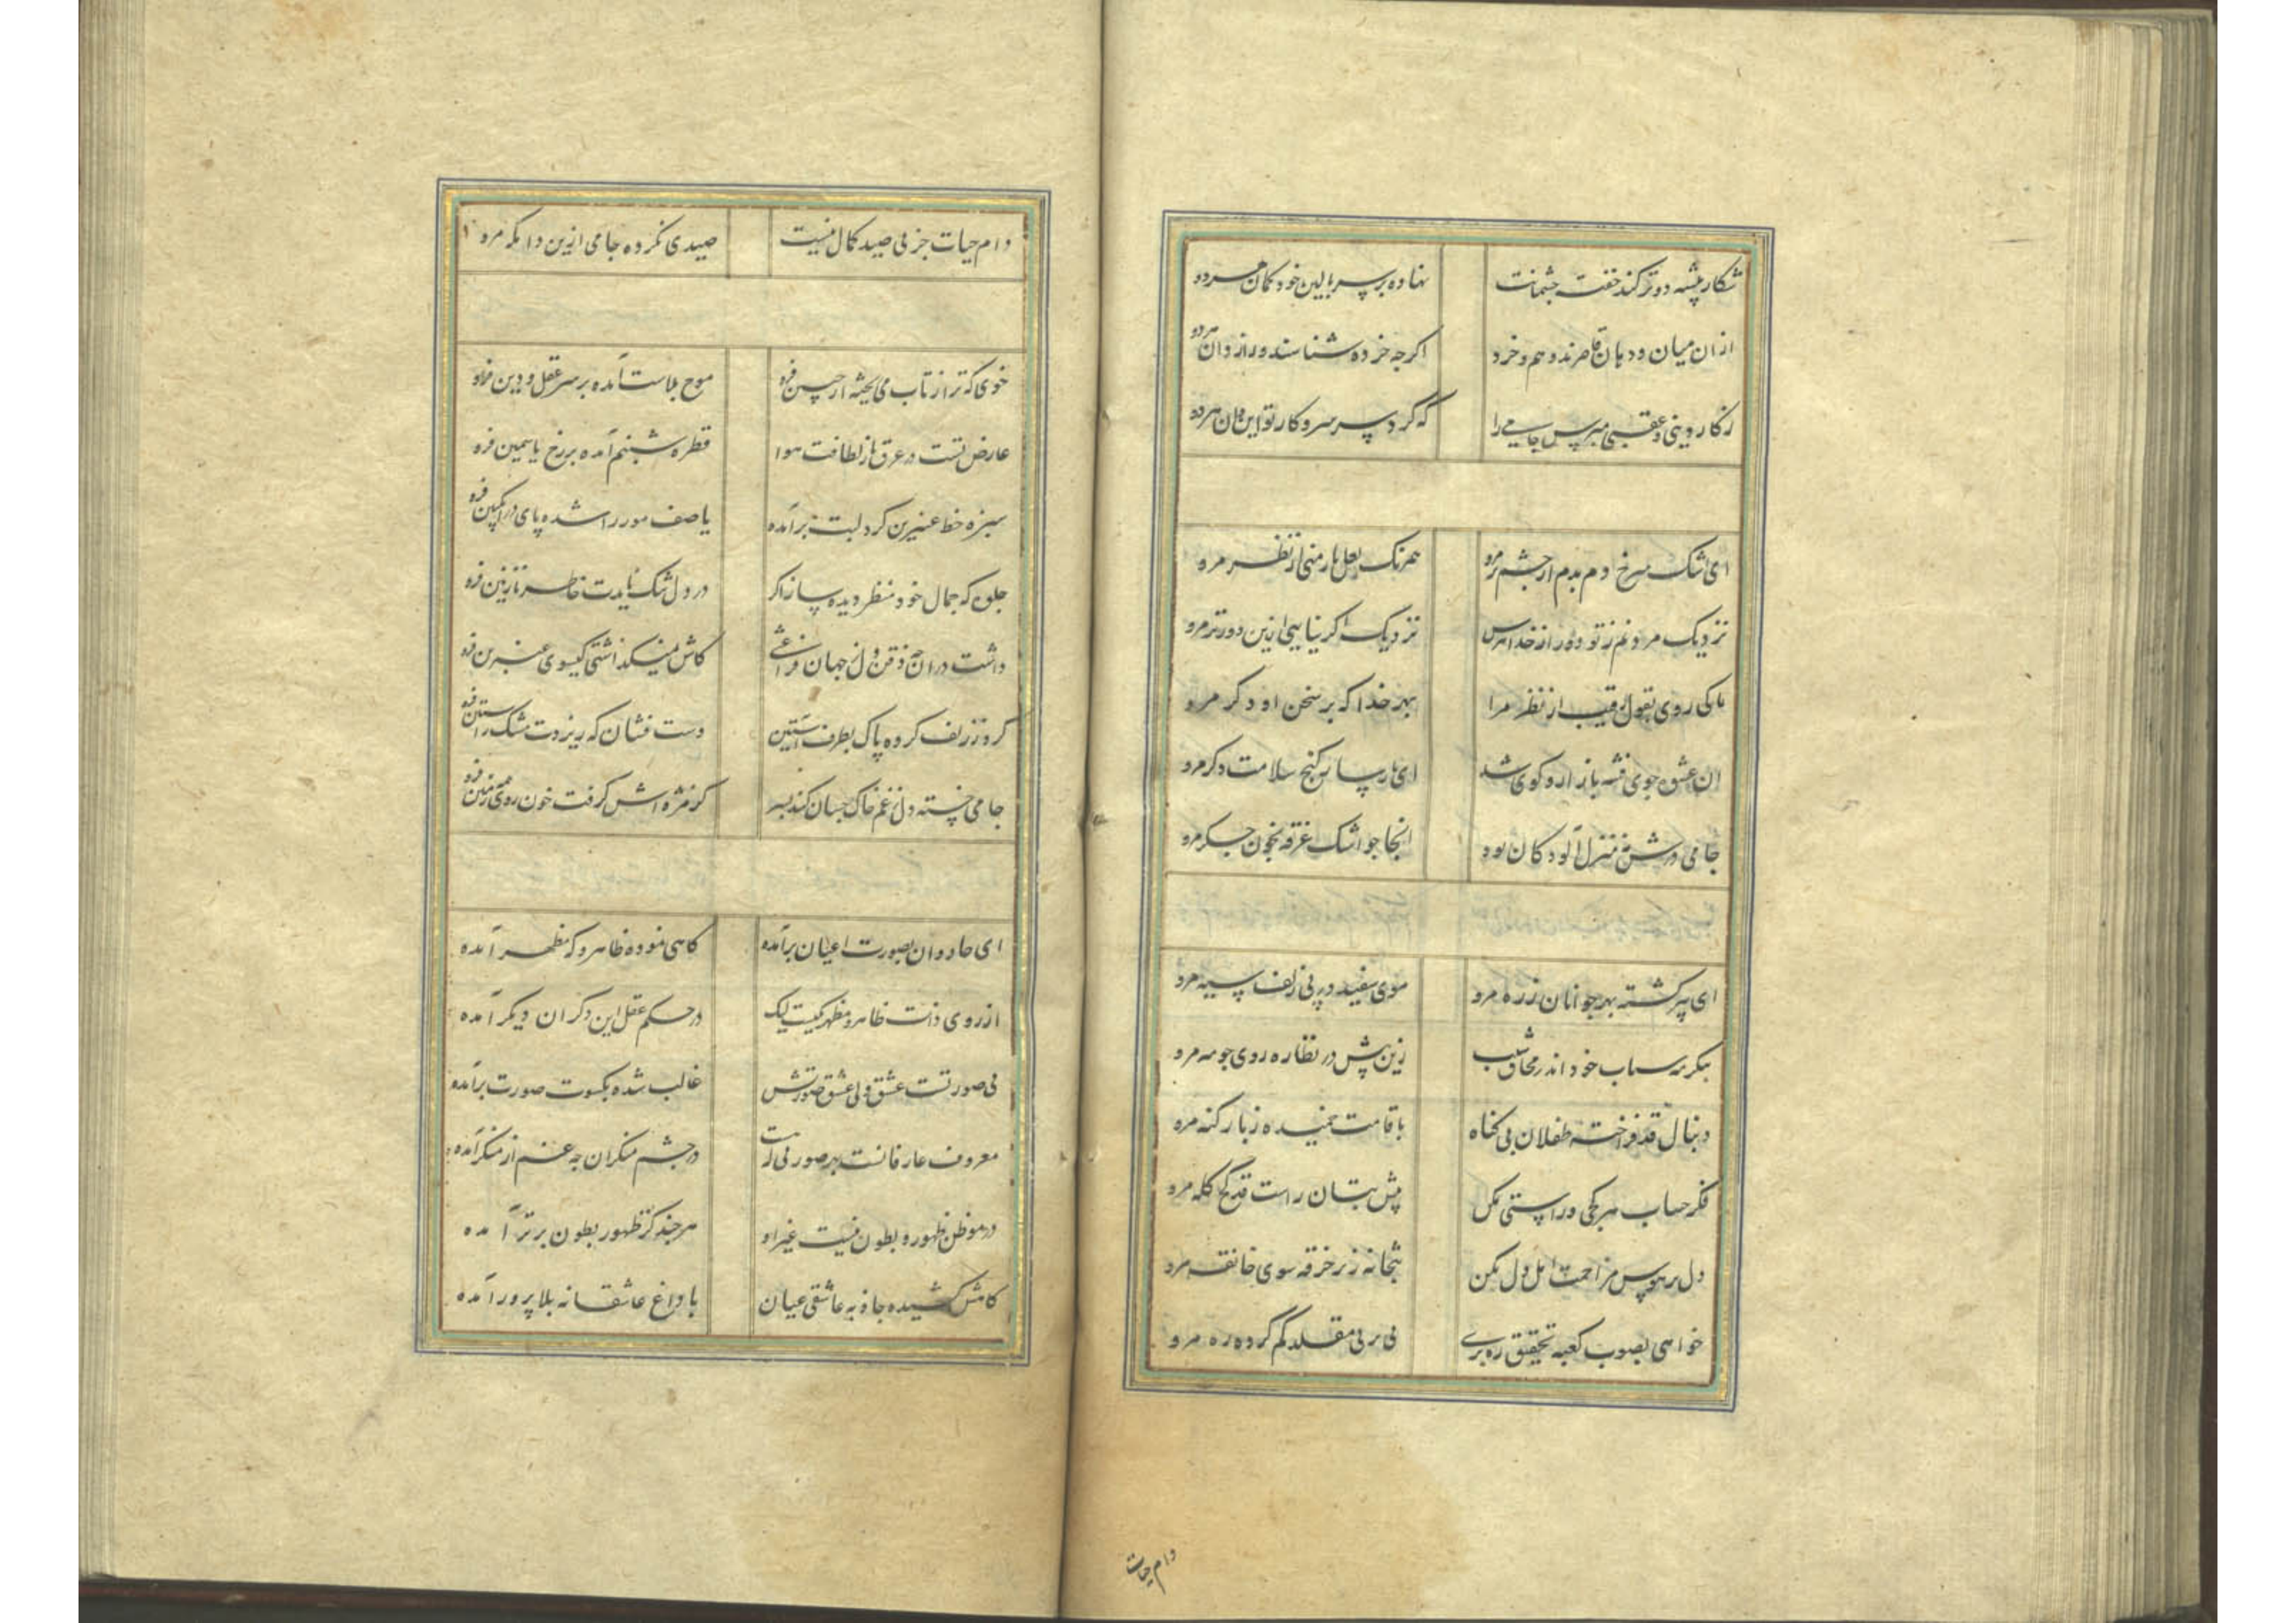 شکار پیشه دو ترکند خفته چشمانت نهاده بر سر بالین خود کمان هر دو
از ان میان و دهان قاصرند وهم و خرد اکرچه خرده شناسند و رازدان هر دو
ز کار دینی و عقبی مپرس جامی را که کرد بر سر و کار تو این و ان هر دو
ای اشک سرخ دم بدم از چشم تر مرو همرنک لعل یار منی از نظر مرو
نزدیک مردنم ز تو دور از خدا بترس نزدیک اکر نیایی ازین دورتر مرو
تا کی روی بقول رقیب از نظر مرا بهر خدا که بر سخن او دکر مرو
ان عشوه جوی فتنه بازار و کوی شد ای پارسا ز کنج سلامت دکر مرو
جامی درش نه منزل آلودکان بود انجا چو اشک غرقه بخون جکر مرو
ای پیر کشته بهر جوانان ز ره مرو موی سفید در پی زلف سیه مرو
بنکر مه شباب خود اندر محاق شیب زین پیش در نظاره روی چو مه مرو
دنبال قد فراخته طفلان بی کناه با قامت خمیده ز بار کنه مرو
فکر حساب هر کجی و راستی بکن پیش بتان راست قد کج کله مرو
دل بر هوس مزاحمت اهل دل مکن بتخانه زیر خرقه سوی خانقه مرو
خواهی بصوب کعبه تحقیق ره بری پی بر پی مقلد کم کرده ره مرو
دام حیات
دام حیات جز پی صید کمال نیست صیدی نکرده جامی ازین دامکه مرو
خوی که ترا ز تاب می از جبین فرو موج بلاست آمده بر سر عقل و دین فرو
عارض تست در عرق یا ز لطافت هوا قطره شبنم آمده بر رخ یاسمین فرو
سبزه خط عنبرین کرد لبت برآمده یا صف مور را شده پای در انکبین فرو
جلوه که جمال خود منظر دیده ساز اکر در دل تنک نایدت خاطر نازنین فرو
داشت در آن ذقن دل از جهان فراغتی کاش نمیکذاشتی کیسوی عنبرین فرو
کرد ز زلف کرده پاک بطرف آستین دست فشان که ریزدت مشک ز استین فرو
جامی خسته دل ز غم خاک چسان کند بسر کز مژه اش کرفت خون روی همه زمین فرو
ای جاودان بصورت اعیان برآمده کاهی نموده ظاهر و که مظهر آمده
از روی ذات ظاهر و مظهر یکیست لیک در حکم عقل این دکر ان دیکر آمده
بی صورتست عشق ولی عشق صورتش غالب شده بکسوت صورت برآمده
معروف عارفانست بهر صورتی که هست در چشم منکران چه غم ار منکر آمده
در موطن ظهور و بطون نیست غیر او هر چند کز ظهور بطون برتر آمده
کامش کشیده جاذبه عاشقی عیان با داغ عاشقانه بلا پرور آمده